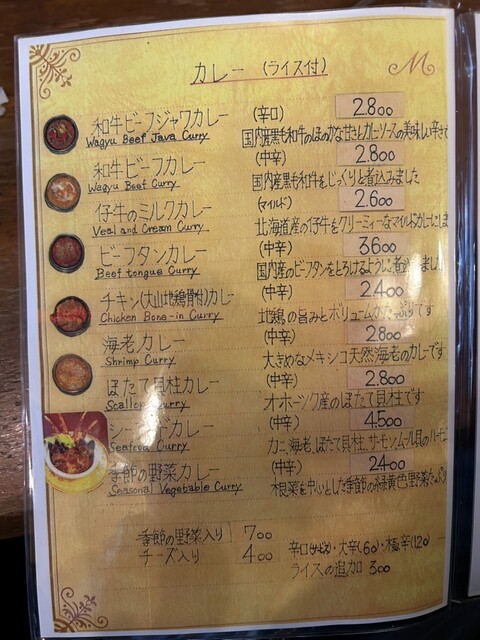 カレー (ライス付)
M
和牛ビーフジャワカレー (辛口) 2.800
Wagyu Beef Java Curry
国内産黒毛和牛のほのかな甘さとカレーソースの美味しい辛さで
和牛ビーフカレー (中辛) 2.800
Wagyu Beef Curry
国内産黒毛和牛をじっくりと煮込みました
仔牛のミルクカレー (マイルド) 2.600
Veal and Cream Curry
北海道産の仔牛をクリーミィーなマイルドカレーにしま
ビーフタンカレー (中辛) 3600
Beef tongue Curry
国内産のビーフタンをとろけるように煮込みました
チキン(大山地鶏骨付)カレー (中辛) 2.400
Chicken Bone-in Curry
地鶏の旨みとボリュームがたっぷりです
海老カレー (中辛) 2.800
Shrimp Curry
大きめなメキシコ天然海老のカレーです
ほたて貝柱カレー (中辛) 2.800
Scallop Curry
オホーツク産のほたて貝柱です
シーフードカレー (中辛) 4.500
Seafood Curry
カニ、海老、ほたて貝柱、サーモン、ムール貝の
季節の野菜カレー (中辛) 2400
Seasonal Vegetable Curry
根菜を中心とした季節の緑黄色野菜
季節の野菜入り 700
チーズ入り 400
辛口(サービス)・大辛(60)・極辛(120)
ライスの追加 300